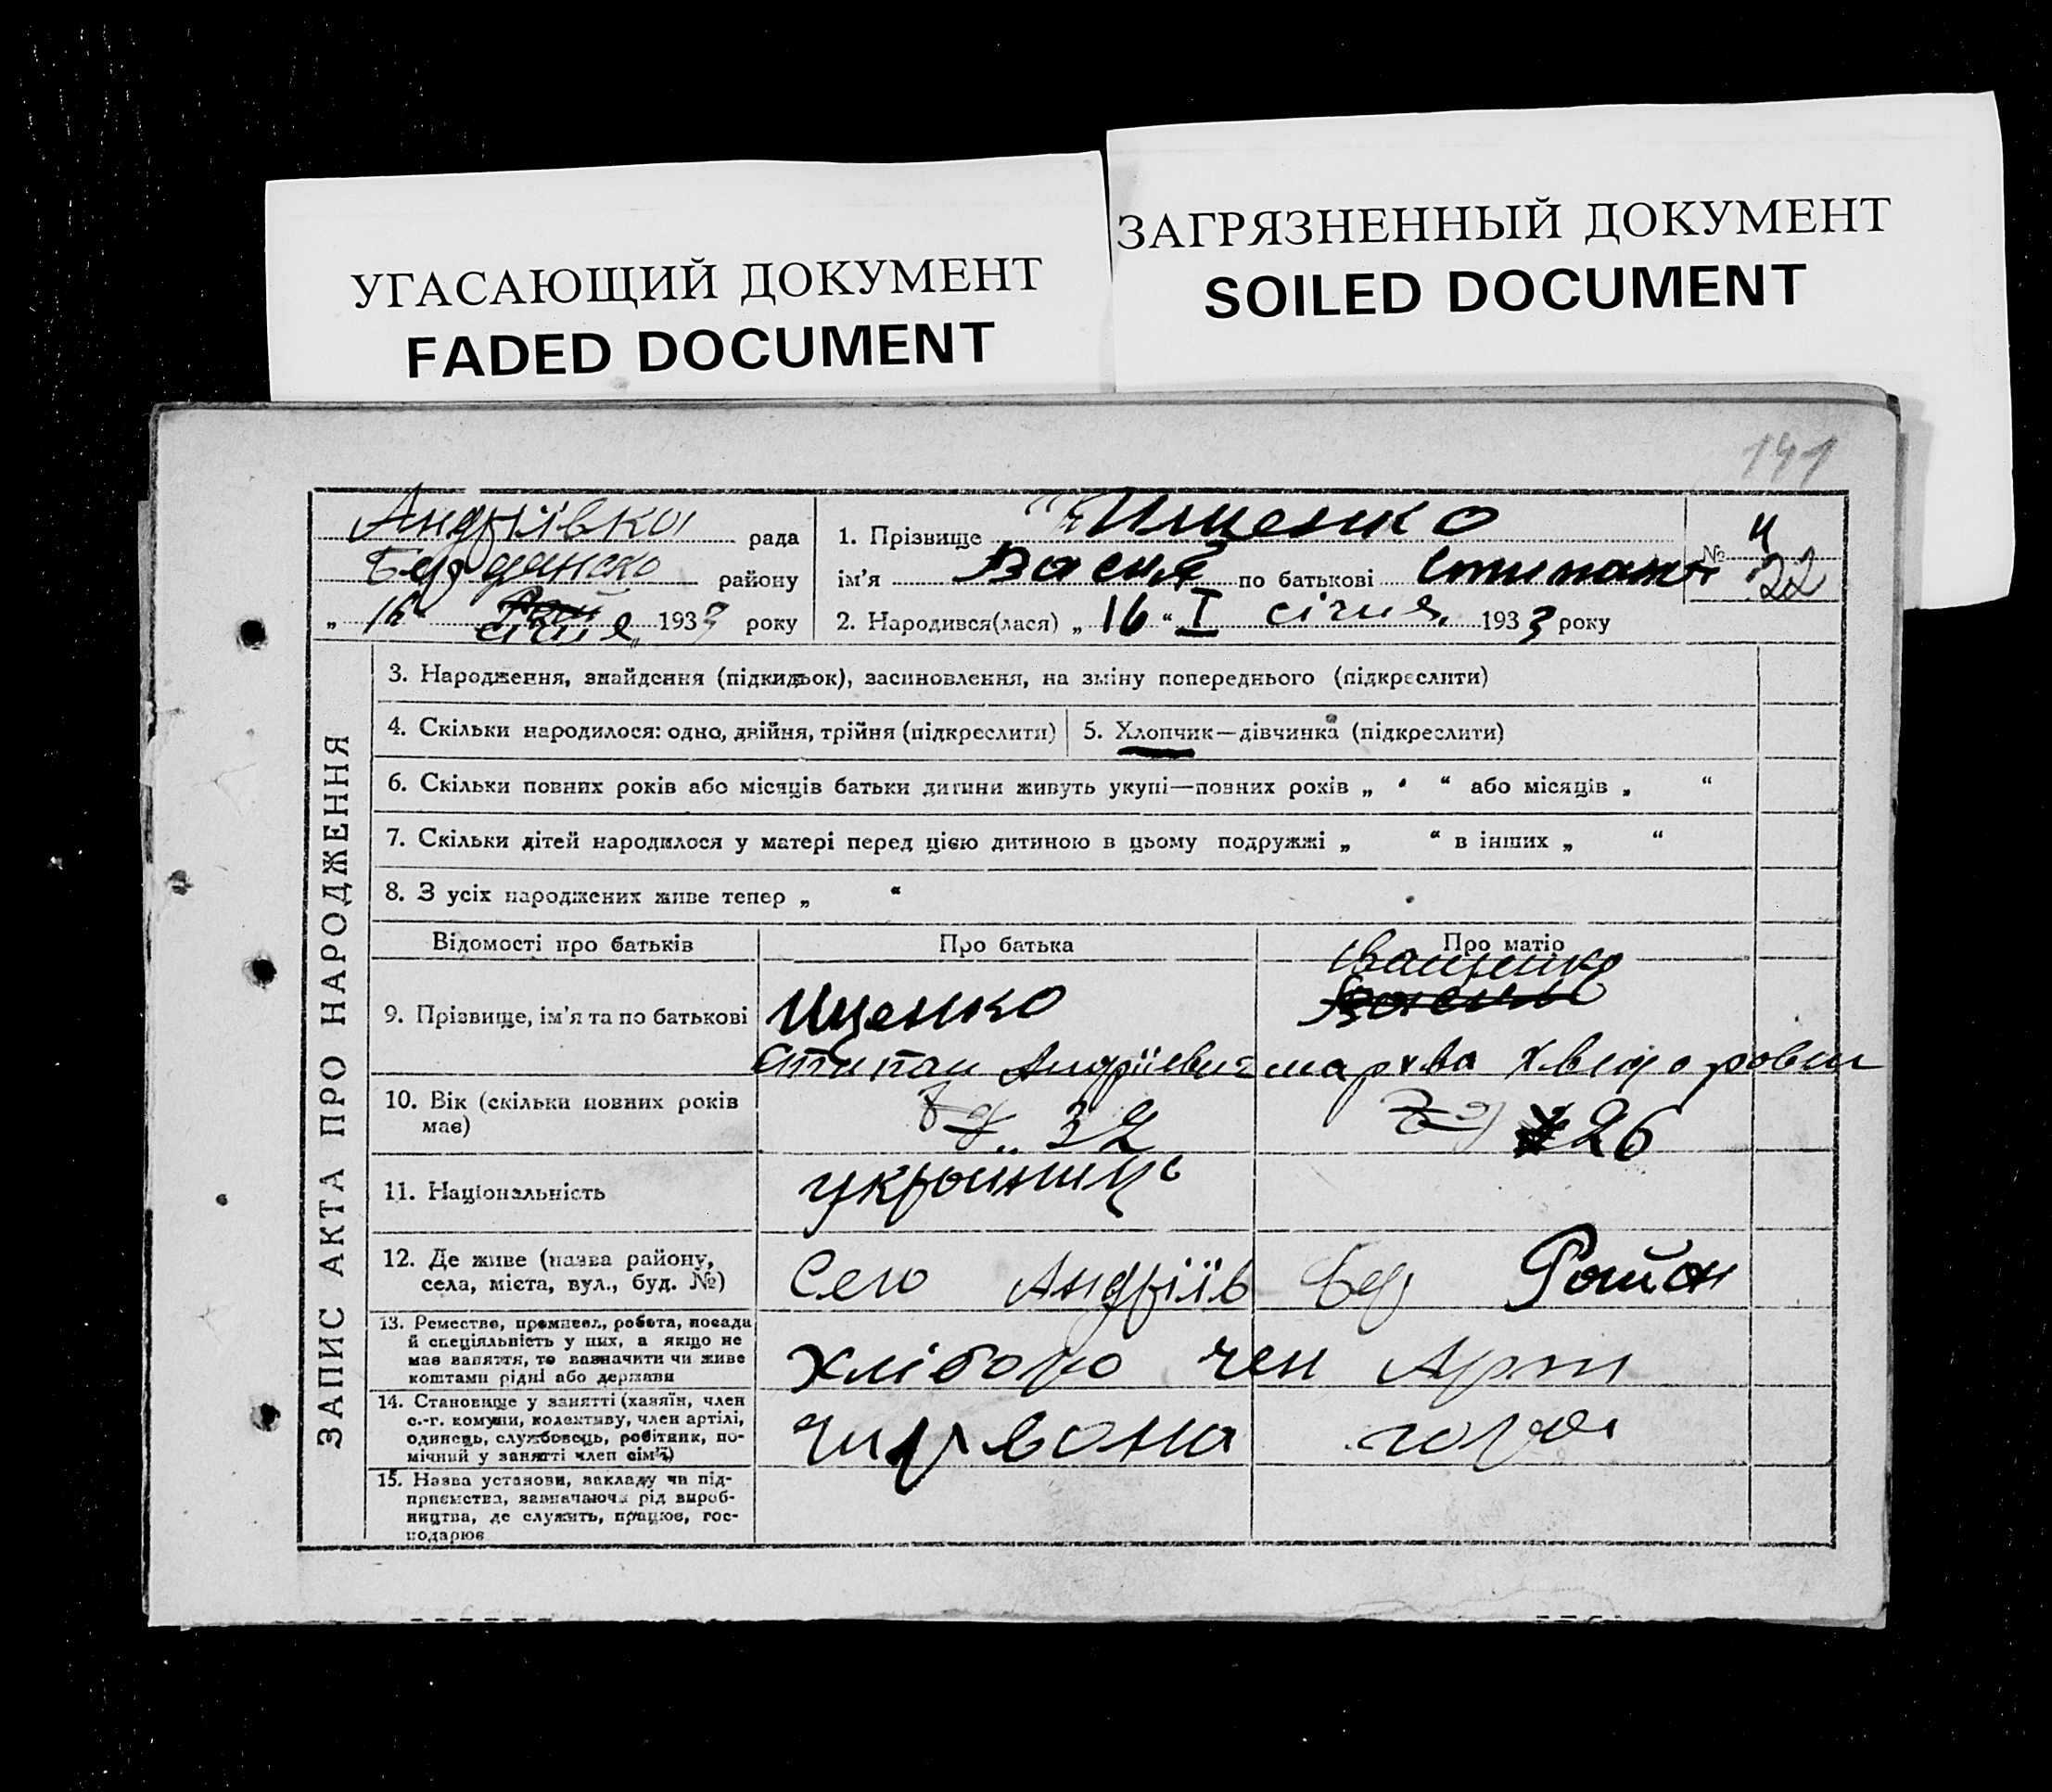 УГАСАЮЩИЙ ДОКУМЕНТ
FADED DOCUMENT
ЗАГРЯЗНЕННЫЙ ДОКУМЕНТ
SOILED DOCUMENT
141
Андріївка рада
Бердянско району
„ 16 " січня 1933 року
1. Прізвище Ищенко
ім'я Васил по батькові Стипан
№ 4
22
2. Народився(лася) „ 16 " I січня 1933 року
ЗАПИС АКТА ПРО НАРОДЖЕННЯ
3. Народження, знайдення (підкидьок), засиновлення, на зміну попереднього (підкреслити)
4. Скільки народилося: одно, двійня, трійня (підкреслити)
5. Хлопчик—дівчинка (підкреслити)
6. Скільки повних років або місяців батьки дитини живуть укупі—повних років „ " або місяців „ "
7. Скільки дітей народилося у матері перед цією дитиною в цьому подружжі „ " в інших „ "
8. З усіх народжених живе тепер „ "
Відомості про батьків
Про батька
Про матір
9. Прізвище, ім'я та по батькові
Ищенко
Стипан Андріевич
Іващенко
мархва Хведоровн
10. Вік (скільки повних років
має)
32
26
11. Національність
україниць
12. Де живе (назва району,
села, міста, вул., буд. №)
Село Андріїв Бер Район
13. Ремество, промисел, робота, посада
й спеціяльність у них, а якщо не
має заняття, то зазначити чи живе
коштами рідні або держави
Хліборо чен Арти
14. Становище у занятті (хазяїн, член
с.-г. комуни, колективу, член артілі,
одинець, службовець, робітник, по-
мічний у занятті член сім'ї)
Чирвона гора
15. Назва установи, закладу чи під-
приємства, зазначаючи рід вироб-
ництва, де служить, працює, гос-
подарює